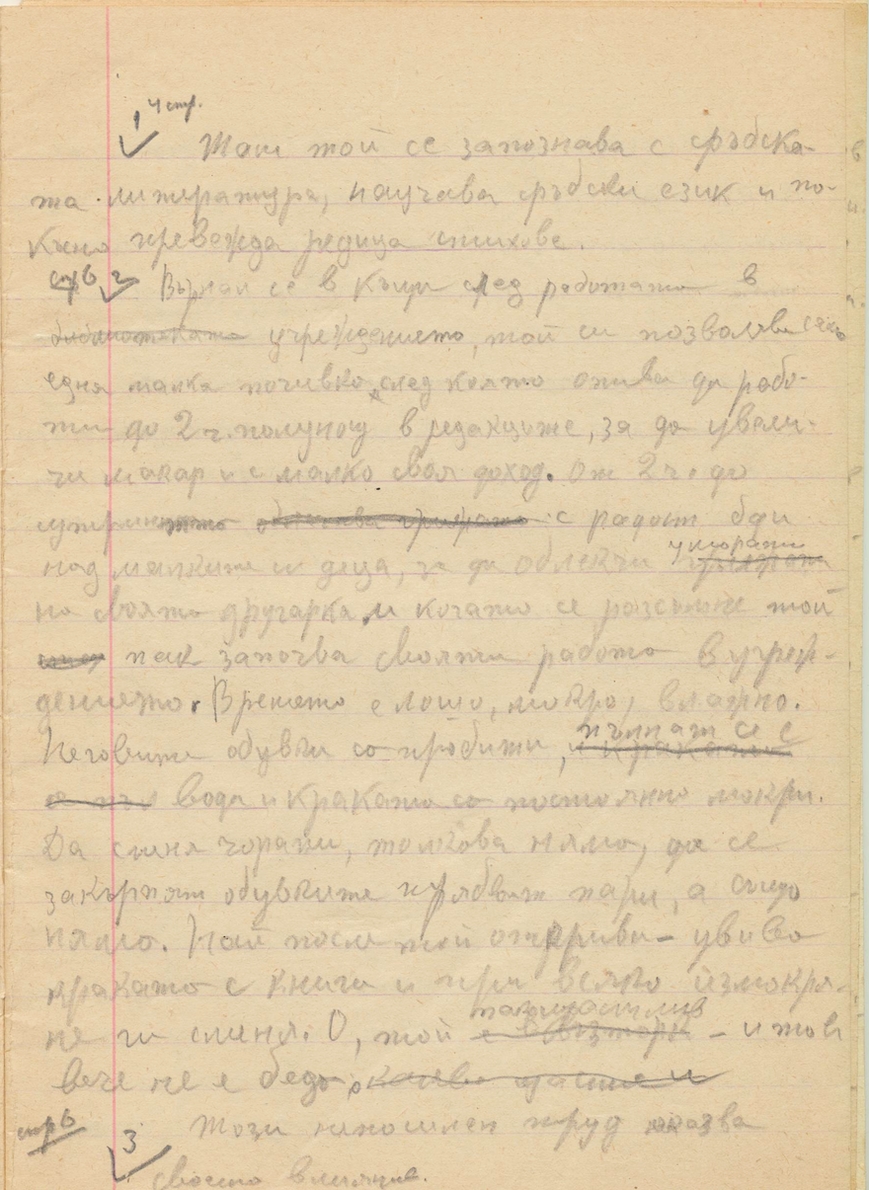 1 4 стр.
Там той се запознава с сръбска-
та литература, научава сръбски език и по-
късно превежда редица стихове.
стр 6 2 Върнал се в къщи след работата в
библиотеката учреждението, той си позволява само
една малка почивка, след която отива да рабо-
ти до 2 ч. полунощ в редакциите, за да увели-
чи макар и с малко своя доход. От 2 ч. до
с радост бди
над малките си деца, за да облекчи умората
на своята другарка, и когато се разсъмне той
пак започва своята работа в учреж-
дението. Времето е лошо, мокро, влажно.
Неговите обувки са пробити, пълнят се с
вода и краката са постоянно мокри.
Да сменя чорапи, толкова няма, да се
закърпят обувките трябват пари, а също
няма. Най после той открива - увива
краката с книги и при всяко измокря-
не ги сменя. О, той - и това
вече не е беда,
стр 6 3 Този непосилен труд оказва
своето влияние.